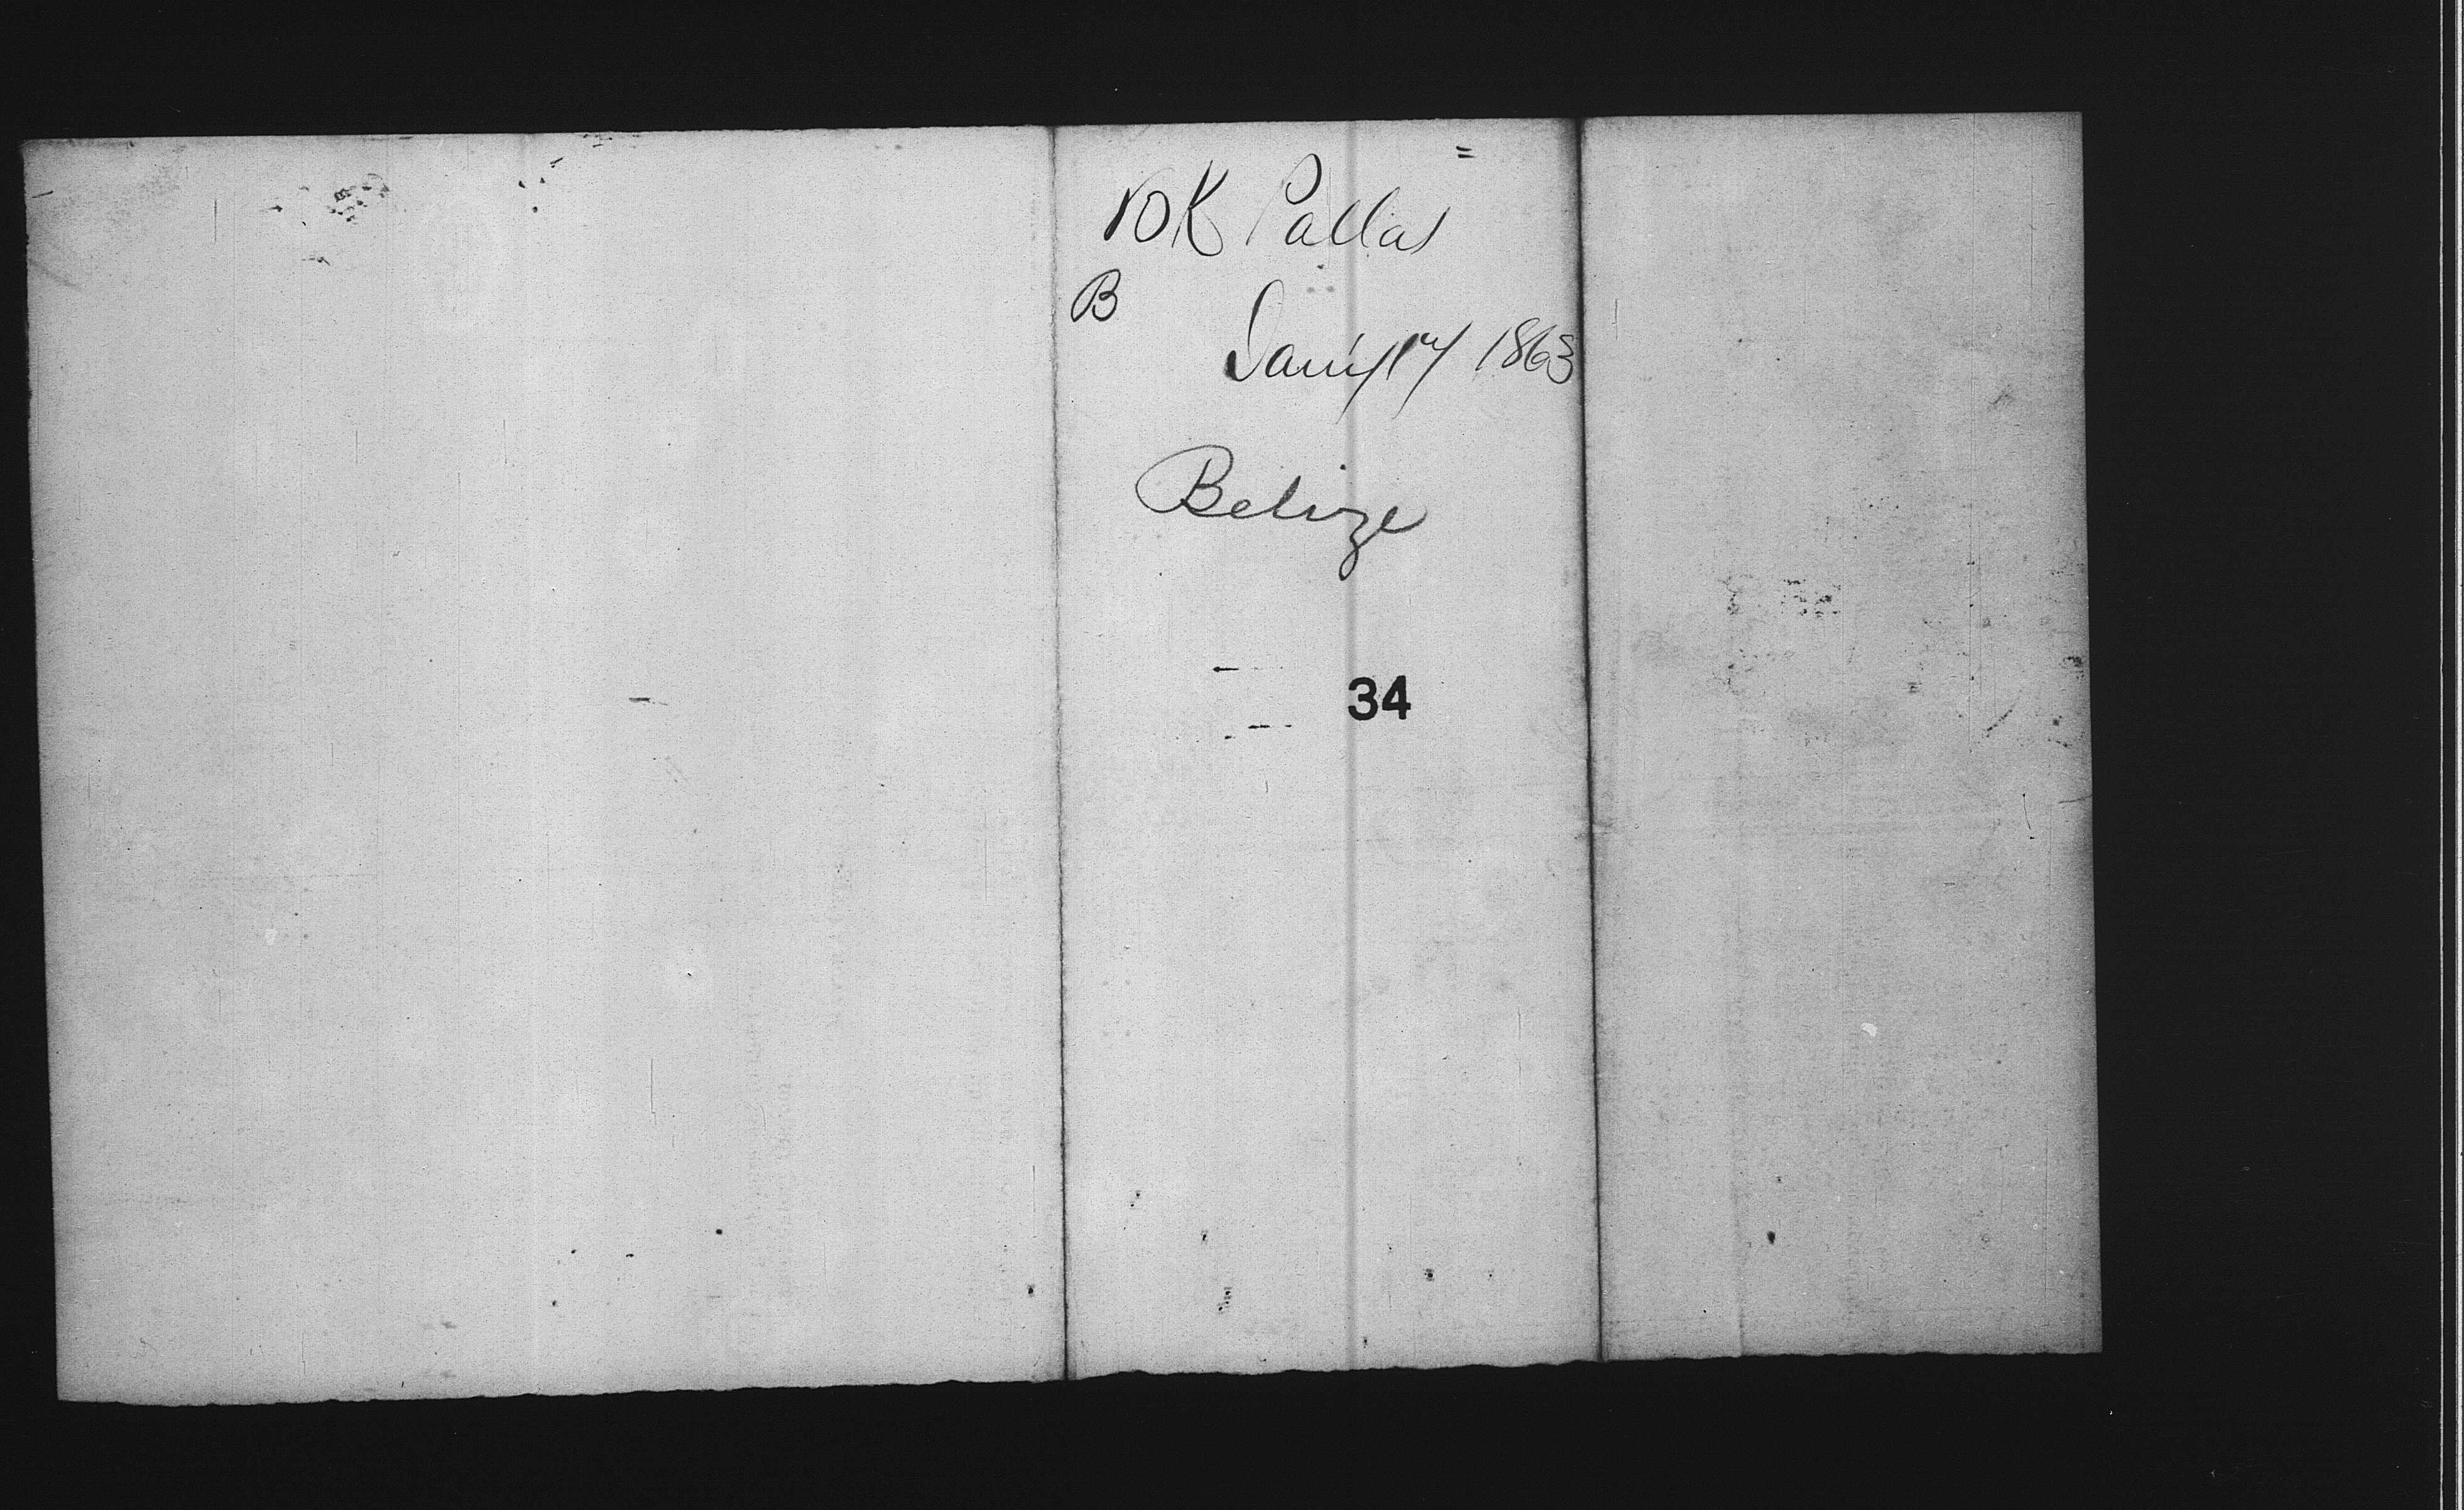 BK Pallas
B
Jan'y 17 1863
Belize
34